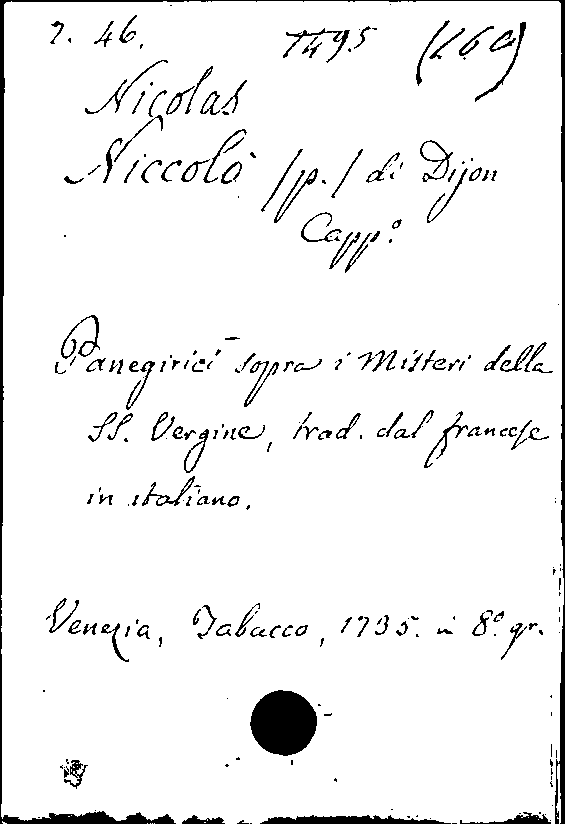 2. 46. 1495 (L6C)
Nicolas
Niccolò /p./ di Dijon
Capp.º
Panegirici sopra i Misteri della
SS. Vergine, trad. dal francese
in italiano.
Venezia, Tabacco, 1735. in 8.º gr.